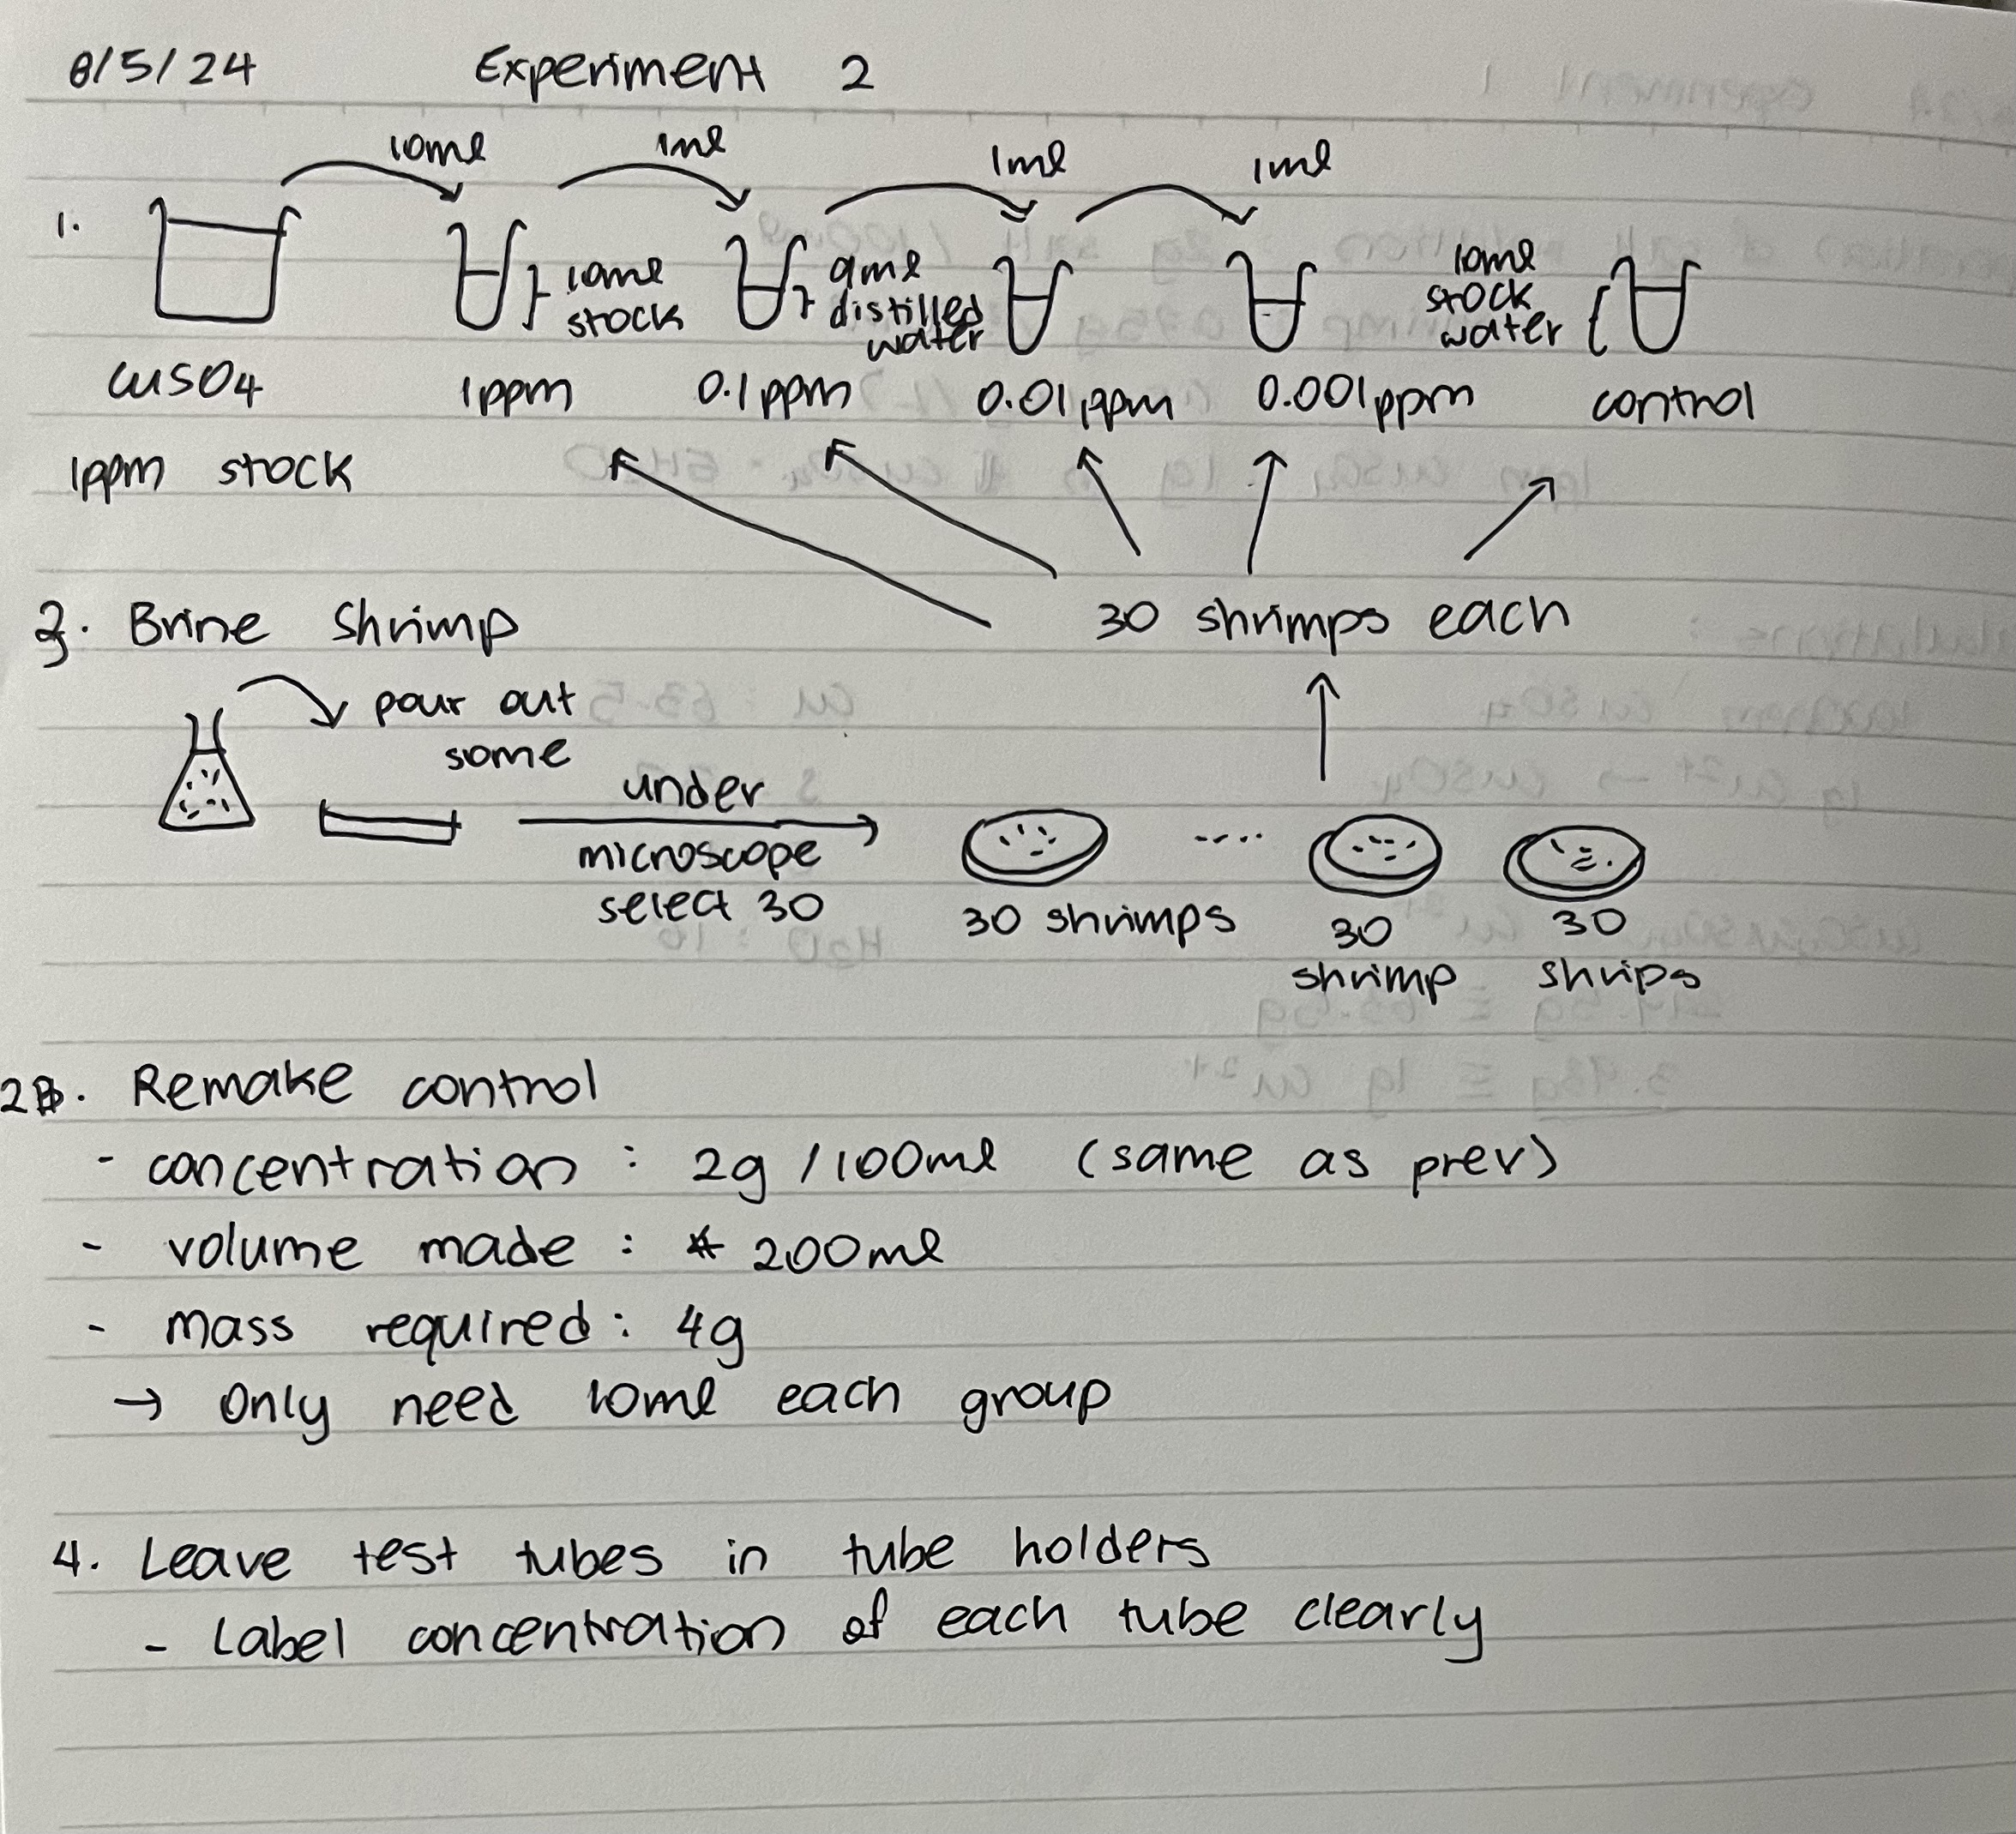 8/5/24 Experiment 2
10ml 1ml 1ml 1ml
1.
10ml stock
9ml distilled water
10ml stock water
CuSO4 1ppm 0.1ppm 0.01ppm 0.001ppm control
1ppm stock
3. Brine Shrimp 30 shrimps each
pour out
some
under
microscope
select 30
30 shrimps
30
shrimp
30
shrips
2. Remake control
- concentration : 2g /100ml (same as prev)
- volume made : 200ml
- mass required : 4g
→ Only need 10ml each group
4. Leave test tubes in tube holders
- Label concentration of each tube clearly